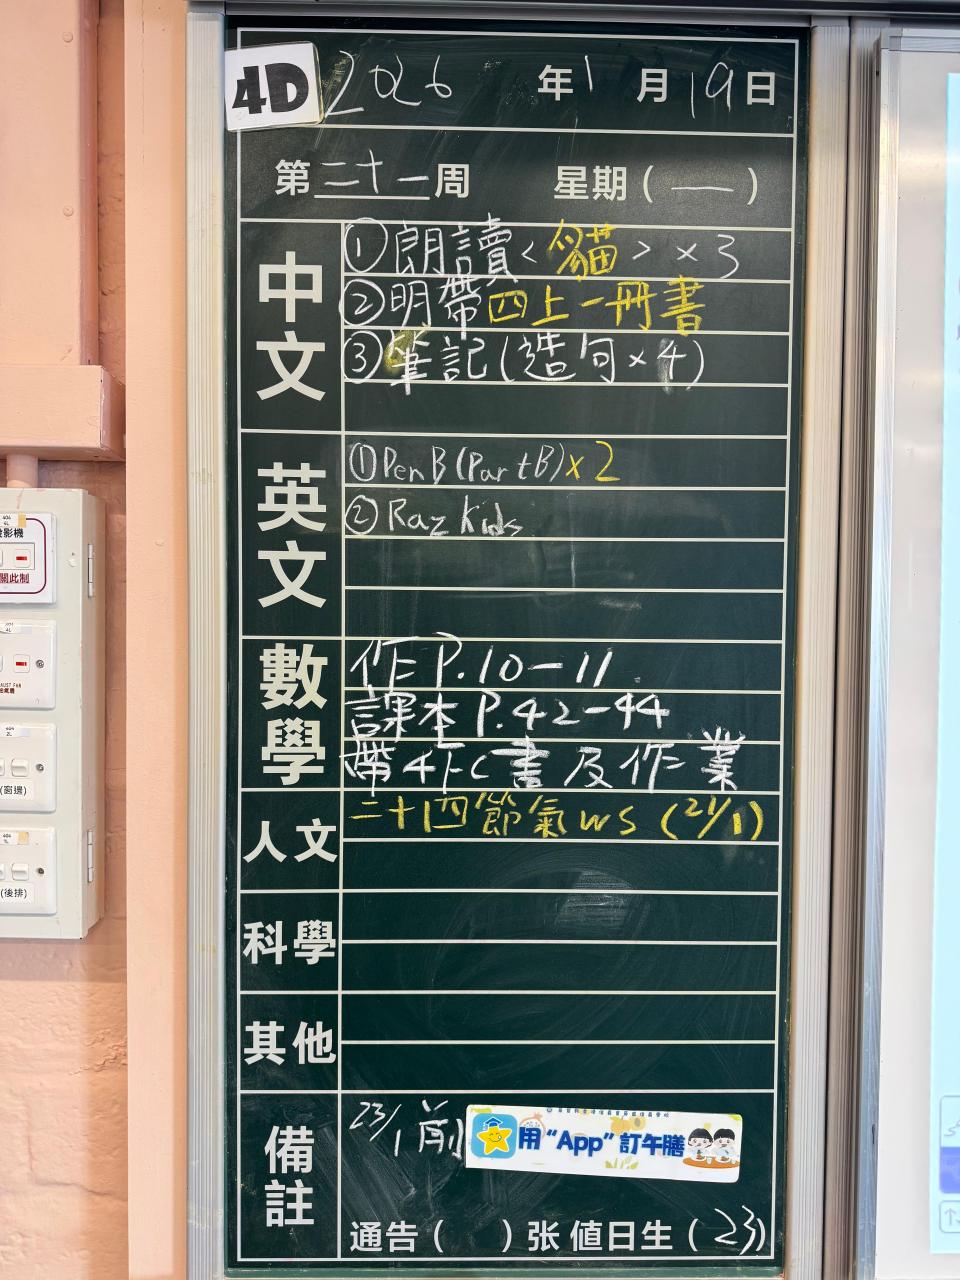 4D 2026 年 1 月 19 日
第 二十一 周 星期 ( 一 )
中文
① 朗讀 < 貓 > × 3
② 明帶四上一冊書
③ 筆記 (造句 × 4)
英文
① Pen B (Part B) × 2
② Raz Kids
數學
作 P.10-11
課本 P.42-44
帶 4下C 書及作業
人文
二十四節氣 WS (21/1)
科學
其他
備註
23/1 前
用 "App" 訂午膳
通告 ( ) 张 値日生 ( 23 )
404
4L
投影機
關此制
4L
404
2L
(窗邊)
404
(後排)